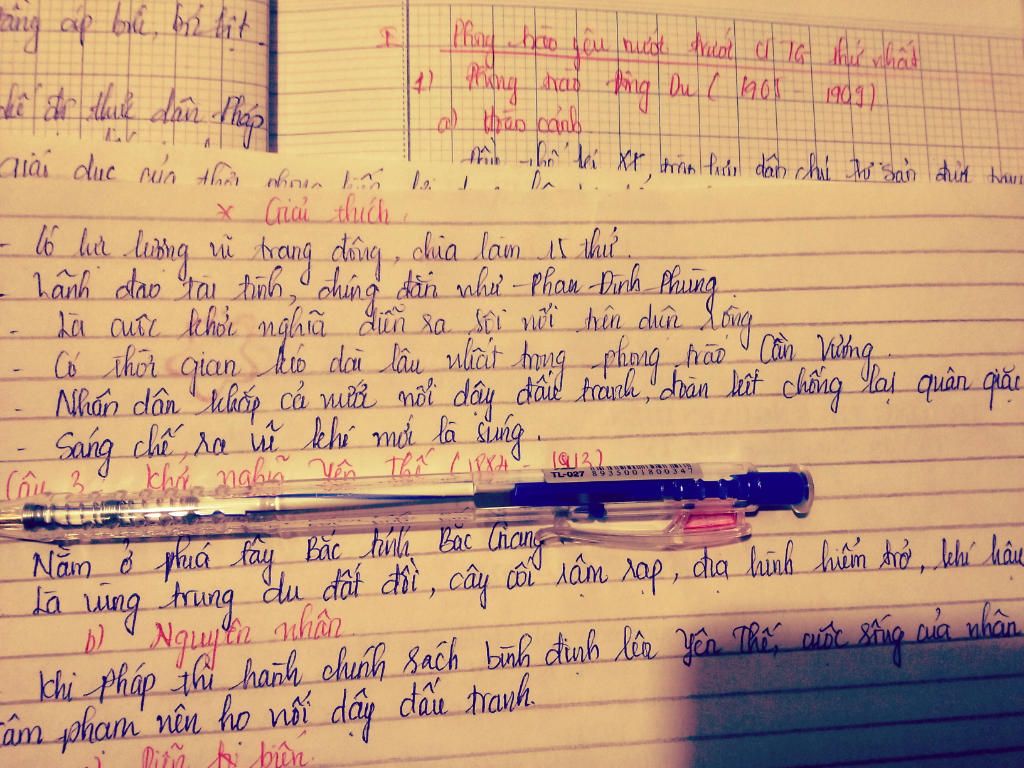 áp bức, bóc lột
thực dân Pháp
I Phong trào yêu nước trước CTTG thứ nhất
1) Phong trào Đông Du (1905 - 1909)
a) Hoàn cảnh
XX, trào lưu dân chủ tư sản
giai dục của
* Giải thích.
- Có lực lượng vũ trang đông, chia làm 15 thứ.
- Lãnh đạo tài tình, đúng đắn như Phan Đình Phùng
- Là cuộc khởi nghĩa diễn ra sôi nổi trên diện rộng
- Có thời gian kéo dài lâu nhất trong phong trào Cần Vương.
- Nhân dân khắp cả nước nổi dậy đấu tranh, đoàn kết chống lại quân giặc
- Sáng chế, ra vũ khí mới là súng.
Câu 3. khởi nghĩa Yên Thế (1884 - 1913)
TL-027 8935001800347
Nằm ở phía tây Bắc tỉnh Bắc Giang
Là vùng trung du đất đồi, cây cối rậm rạp, địa hình hiểm trở, khí hậu
b) Nguyên nhân
Khi pháp thi hành chính sách bình định lên Yên Thế, cuộc sống của nhân
xâm phạm nên họ nổi dậy đấu tranh.
Diễn biến